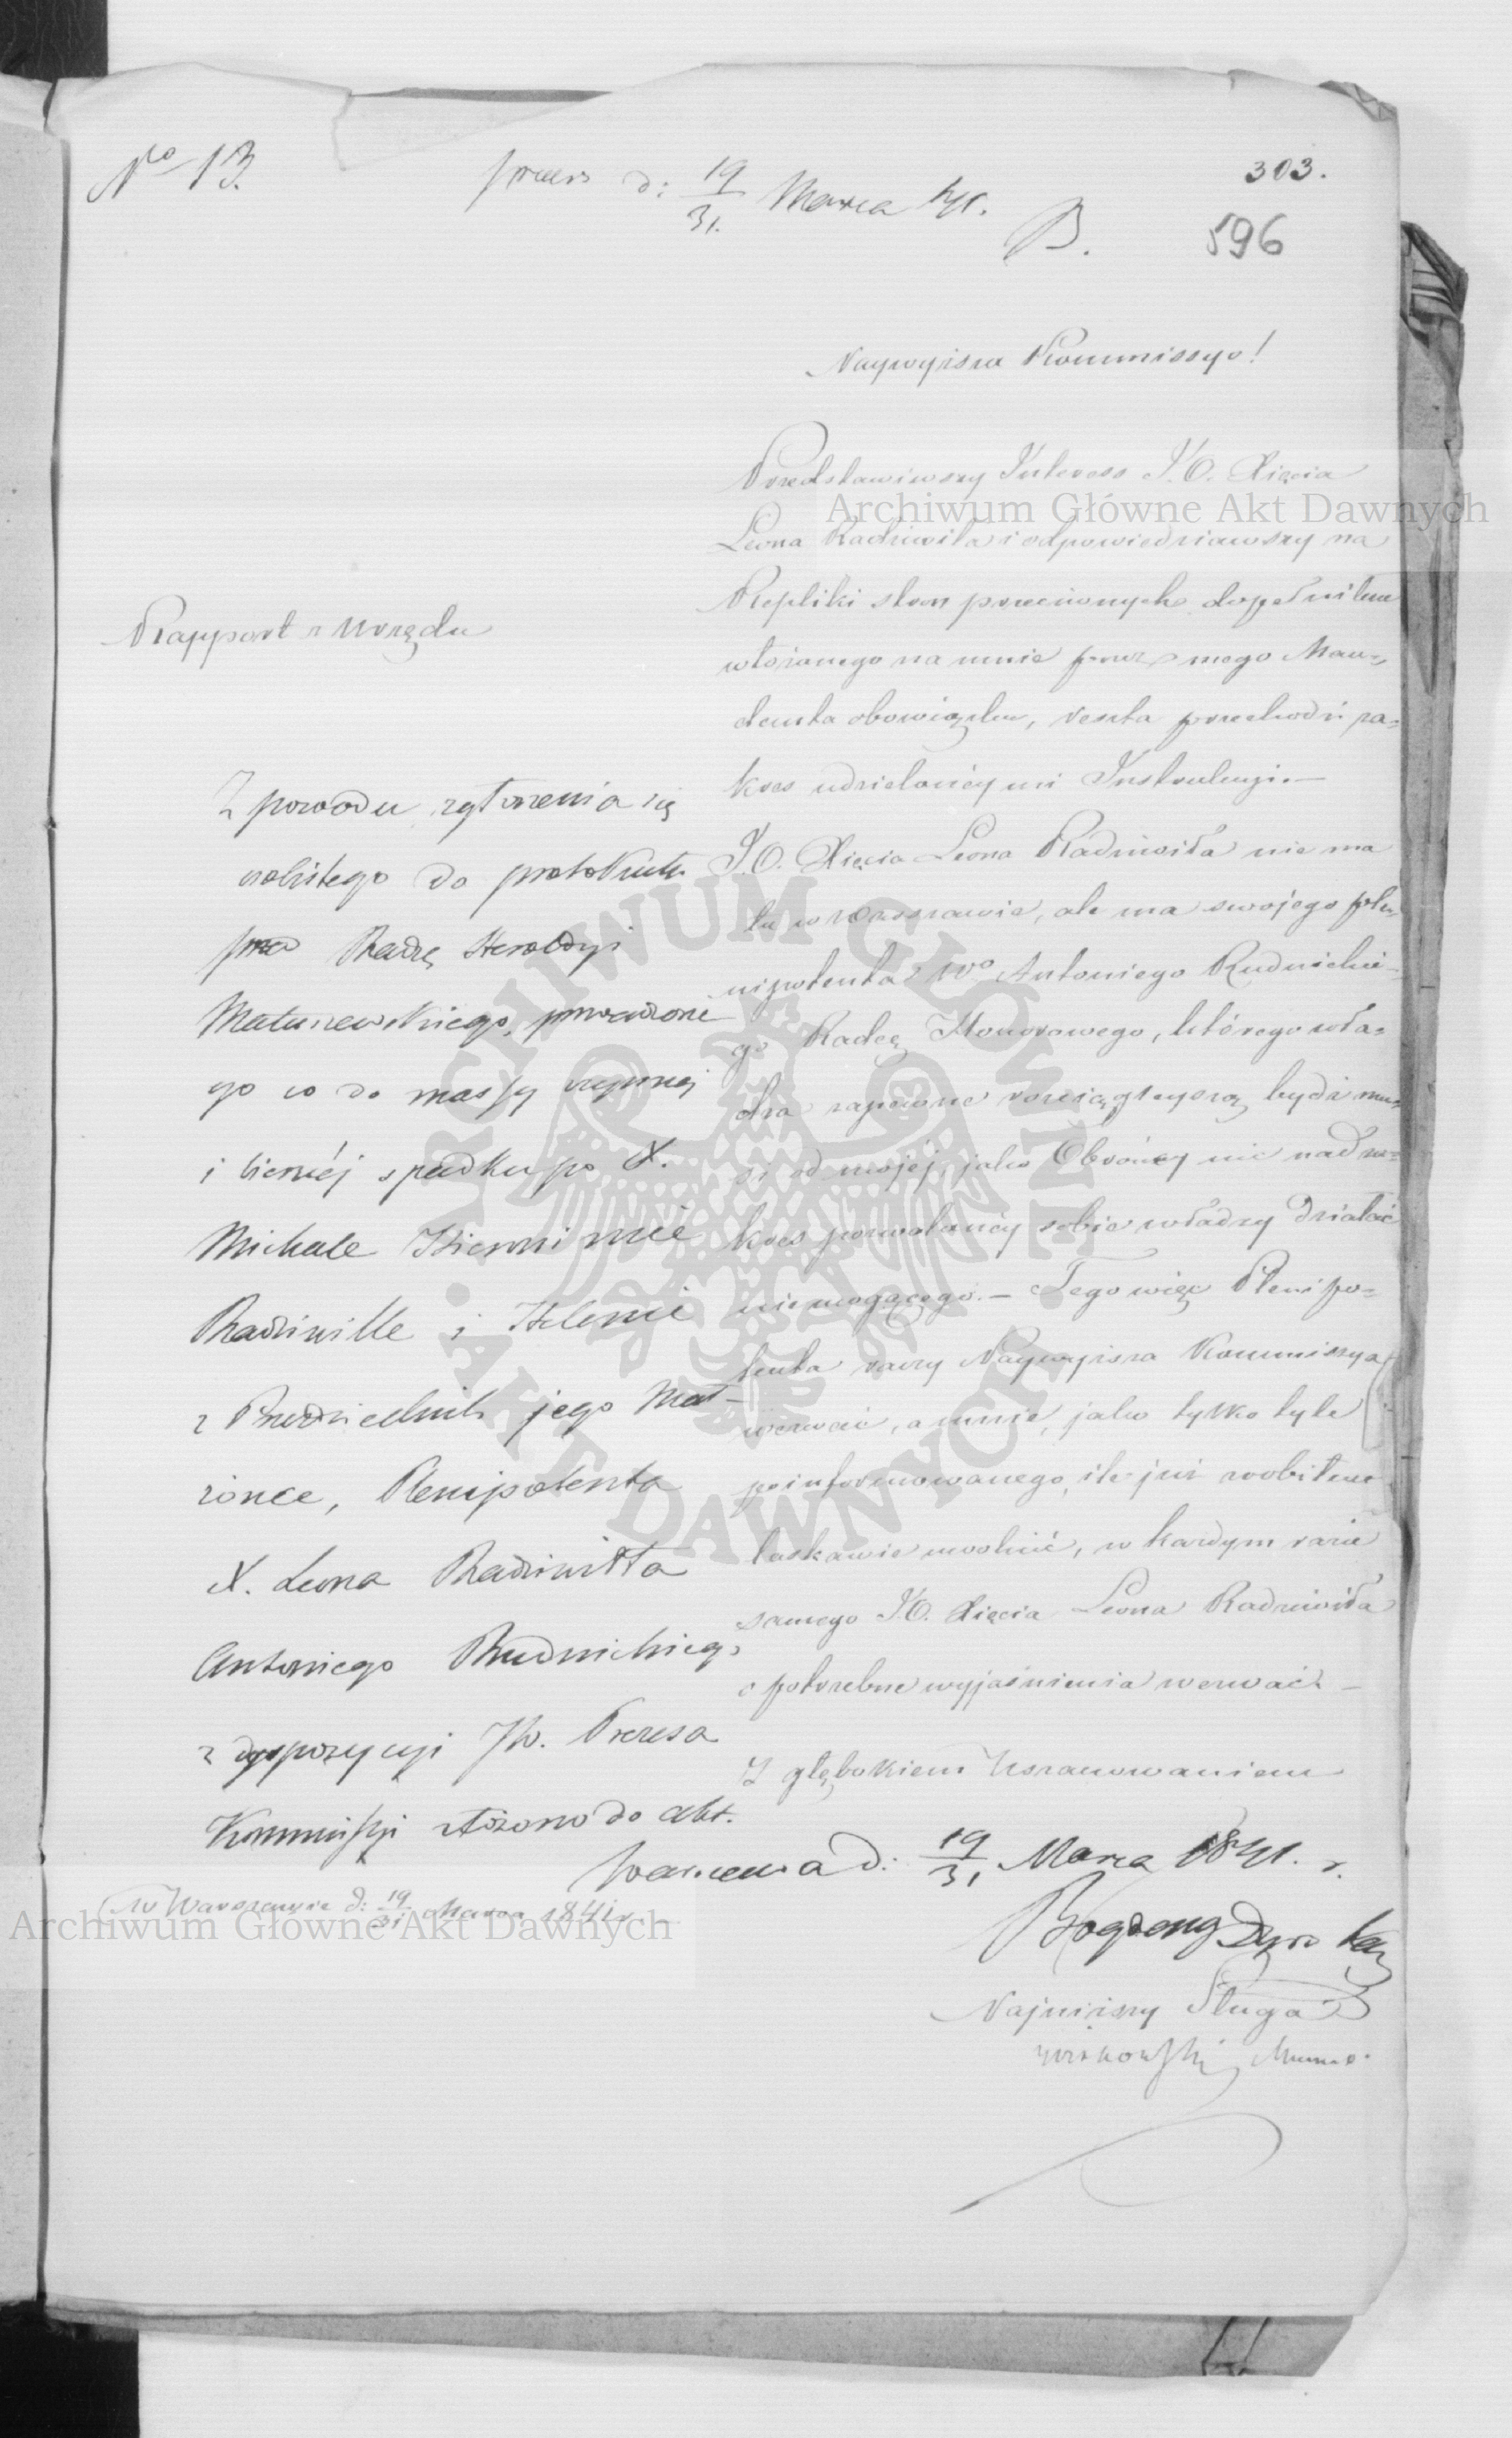 No 13.
praes d: 19/31. Marca 41.
303.
B.
596
Naywyższa Kommissyo!
Przedstawiwszy Interess J.O. Xięcia
Leona Radziwiła i odpowiedziawszy na
Repliki stron przeciwnych dopełniłem
włożonego na mnie przez mego Man=
denta obowiązku, reszta przechodzi za=
kres udzielonéy mi Instrukcyi.—
J.O. Xięcia Leona Radziwiła nie ma
tu w Warszawie, ale ma swojego ple=
nipotenta Wo Antoniego Rudnickie=
go Radcę Honorowego, którego wła=
dza zapewne rozciąglejszą bydź mu=
si od mojej, jako Obrońcy nic nad za=
kres pozwolonéy sobie władzy działać
niemogącego.— Tego więc Plenipo=
tenta raczy Naywyższa Kommissya
wezwać, a mnie, jako tylko tyle
poinformowanego, ile już zrobiłem
łaskawie uwolnić, w każdym razie
samego J.O. Xięcia Leona Radziwiła
o potrzebne wyjaśnienia wezwać.—
Z głębokiem Uszanowaniem
Najniższy Sługa
Rapport z Urzędu
Z powodu zgłoszenia się
osobistego do protokułu
przez Radzę Heroldyi
Matuszewskiego, prowadzone
go co do massy czynnej
i biernéj spadku po X.
Michale Hieronimie
Radziwille i Helenie
z Przezdzieckich jego Mał-
żonce, Plenipotenta
X. Leona Radziwiłła
Antoniego Rudnickiego
z dyspozycyi JW. Prezesa
Kommissyi złożono do akt.
Warszawa d: 19/31 Marca 1841. r.
w Warszawie d: 19/31 Marca 1841 r.
Archiwum Główne Akt Dawnych
Archiwum Główne Akt Dawnych
ARCHIWUM GŁÓWNE AKT DAWNYCH